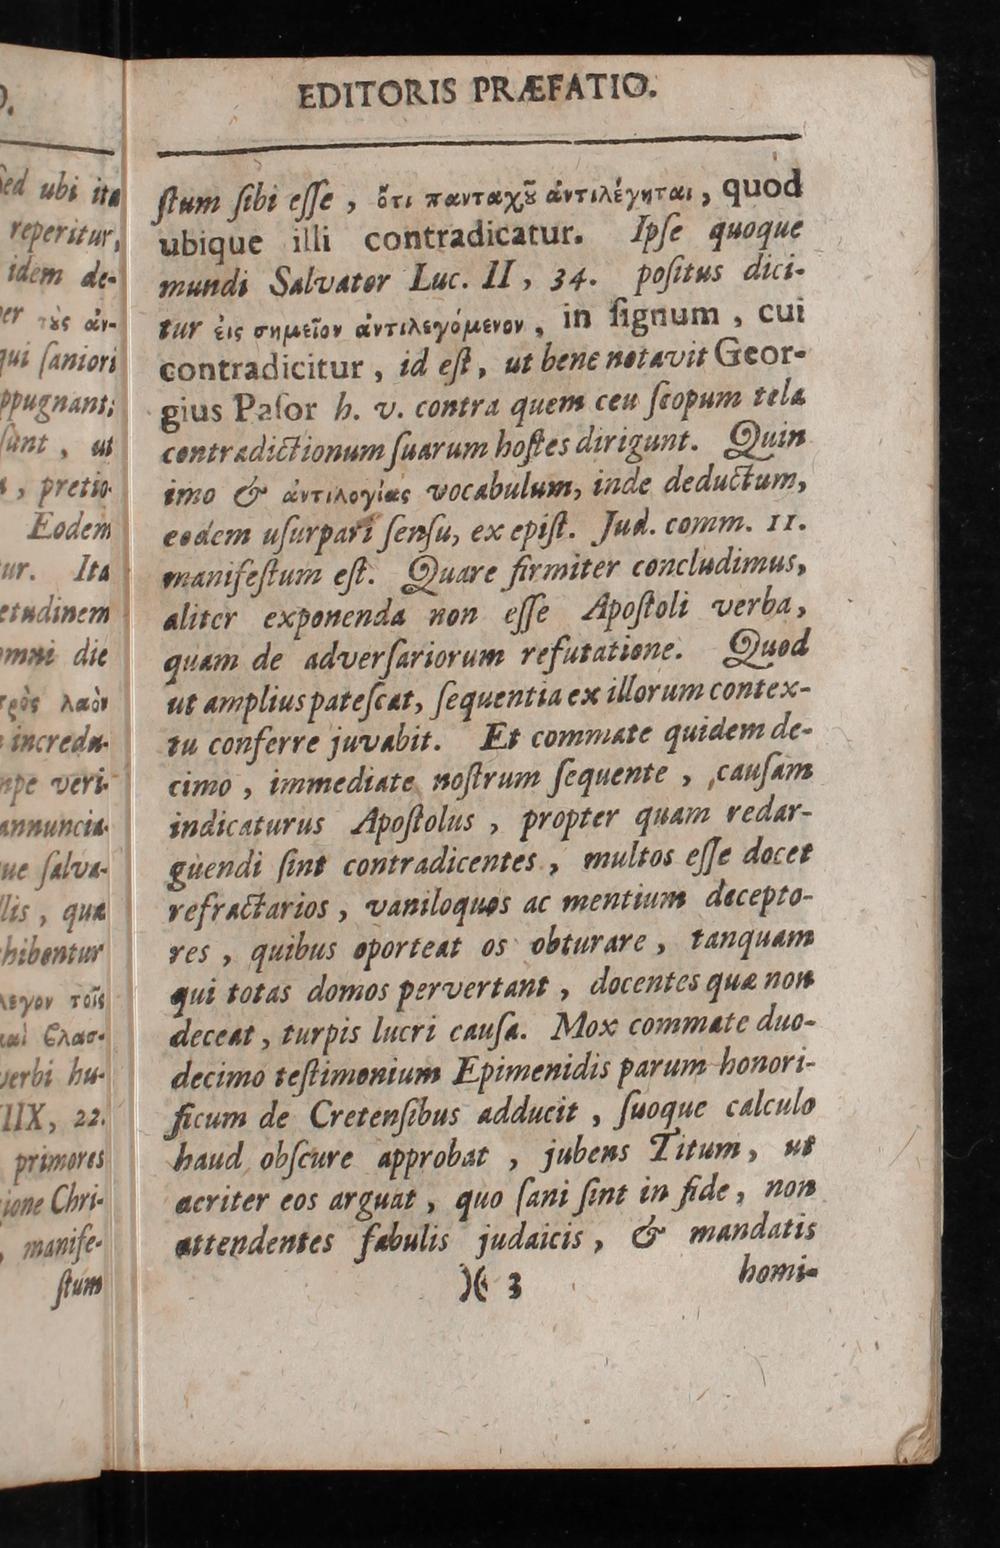 EDITORIS PRÆFATIO.
ſtum ſibi eſſe, ὅτι πανταχȣ͂ ἀντιλέγηται, quod
ubique illi contradicatur. Ipſe quoque
mundi Salvator Luc. II, 34. poſitus dici-
tur ἐις σημεῖον ἀντιλεγόμενον, in ſignum, cui
contradicitur, id eſt, ut bene notavit Geor-
gius Paſor h. v. contra quem ceu ſcopum tela
contradictionum ſuarum hoſtes dirigunt. Quin
imo & ἀντιλογίας vocabulum, inde deductum,
eodem uſurpari ſenſu, ex epiſt. Jud. comm. 11.
manifeſtum eſt. Quare firmiter concludimus,
aliter exponenda non eſſe Apoſtoli verba,
quam de adverſariorum refutatione. Quod
ut amplius pateſcat, ſequentia ex illorum contex-
tu conferre juvabit. Et commate quidem de-
cimo, immediate noſtrum ſequente, cauſam
indicaturus Apoſtolus, propter quam redar-
guendi ſint contradicentes, multos eſſe docet
refractarios, vaniloquos ac mentium decepto-
res, quibus oporteat os obturare, tanquam
qui totas domos pervertant, docentes quæ non
deceat, turpis lucri cauſa. Mox commate duo-
decimo teſtimonium Epimenidis parum honori-
ficum de Cretenſibus adducit, ſuoque calculo
haud obſcure approbat, jubens Titum, ut
acriter eos arguat, quo ſani ſint in fide, non
attendentes fabulis judaicis, & mandatis
)( 3 homi-
ſed ubi ita
reperitur,
idem de-
τὺς ἀν-
qui ſaniori
ppugnant;
ſunt, ut
, pretio
Eodem
ur. Ita
etudinem
omni die
λαὸν
incredu-
veri-
annuncia-
ſalva-
, quæ
hibentur
λεγον τοῖς
verbi hu-
IIX, 22.
primores
ione Chri-
, manife-
ſtum